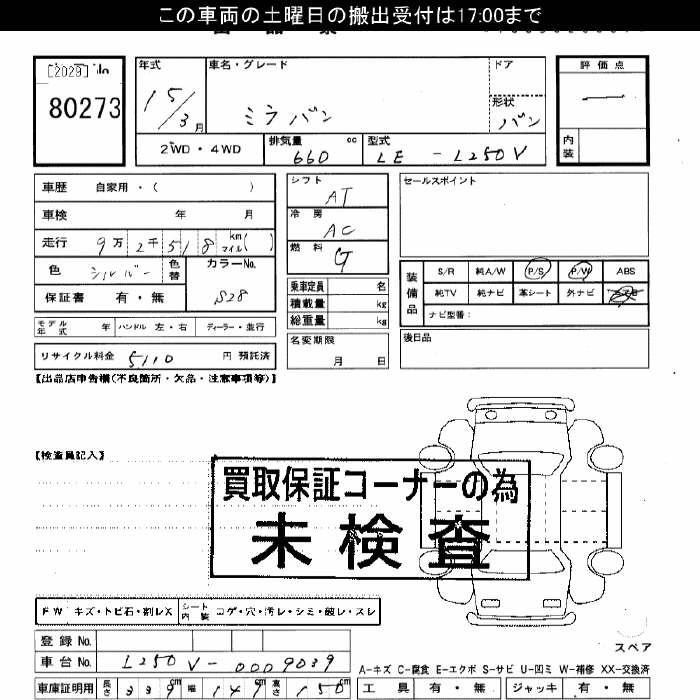 この車両の土曜日の搬出受付は17:00まで
[2029] No
80273
年式
15/3月
車名・グレード
ミラバン
ドア
形状
バン
評価点
内装
2WD・4WD
排気量 cc
660
型式
LE - L250V
車歴 自家用・( )
車検 年 月
走行 9万 2千 518 km マイル( )
色 シルバー
色替
カラーNo.
S28
保証書 有・無
モデル年式 年 ハンドル 左・右 ディーラー・並行
リサイクル料金 5110 円 預託済
シフト
AT
冷房
AC
燃料
G
乗車定員 名
積載量 kg
総重量 kg
名変期限
月 日
セールスポイント
装備品
S/R 純A/W P/S P/W ABS
純TV 純ナビ 革シート 外ナビ
ナビ型番:
後日品
【出品店申告欄(不良箇所・欠品・注意事項等)】
【検査員記入】
買取保証コーナーの為
未検査
FW キズ・トビ石・割レX
シート内装 コゲ・穴・汚レ・シミ・破レ・スレ
スペア
登録No.
車台No. L250V-0009039
A-キズ C-腐食 E-エクボ S-サビ U-凹ミ W-補修 XX-交換済
車庫証明用 長さ 339cm 幅 147cm 高さ 150cm
工具 有・無 ジャッキ 有・無